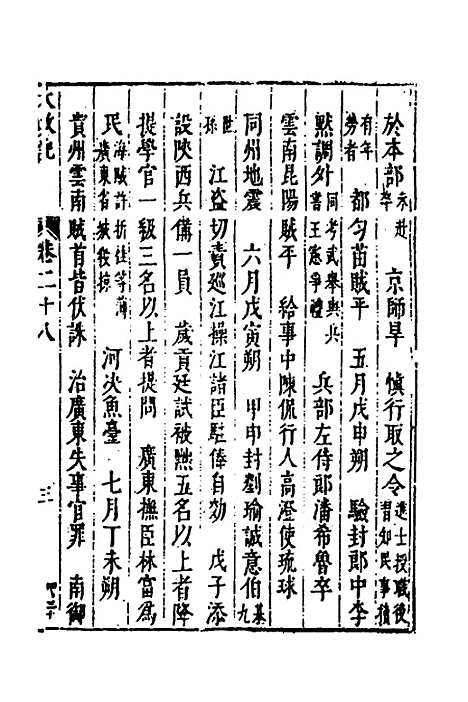 於本部亦赴卒 京師旱 慎行取之令進士授職後習知民事積
有年勞者 都勻苗賊平 五月戊申朔 驗封郎中李
黙調外同考武舉與兵書王憲爭禮 兵部左侍郎潘希曾卒
雲南昆陽賊平 給事中陳侃行人高澄使琉球
同州地震 六月戊寅朔 甲申封劉瑜誠意伯基九
世孫 江盜切責巡江操江諸臣駐俸自劾 戊子添
設陜西兵備一員 歲貢廷試被黜五名以上者降
提學官一級三名以上者提問 廣東撫臣林富爲
民海賊許折桂等薄廣東省城殺掠 河決魚臺 七月丁未朔
貴州雲南賊首皆伏誅 治廣東失事官罪 南御
大政記 卷二十八 三